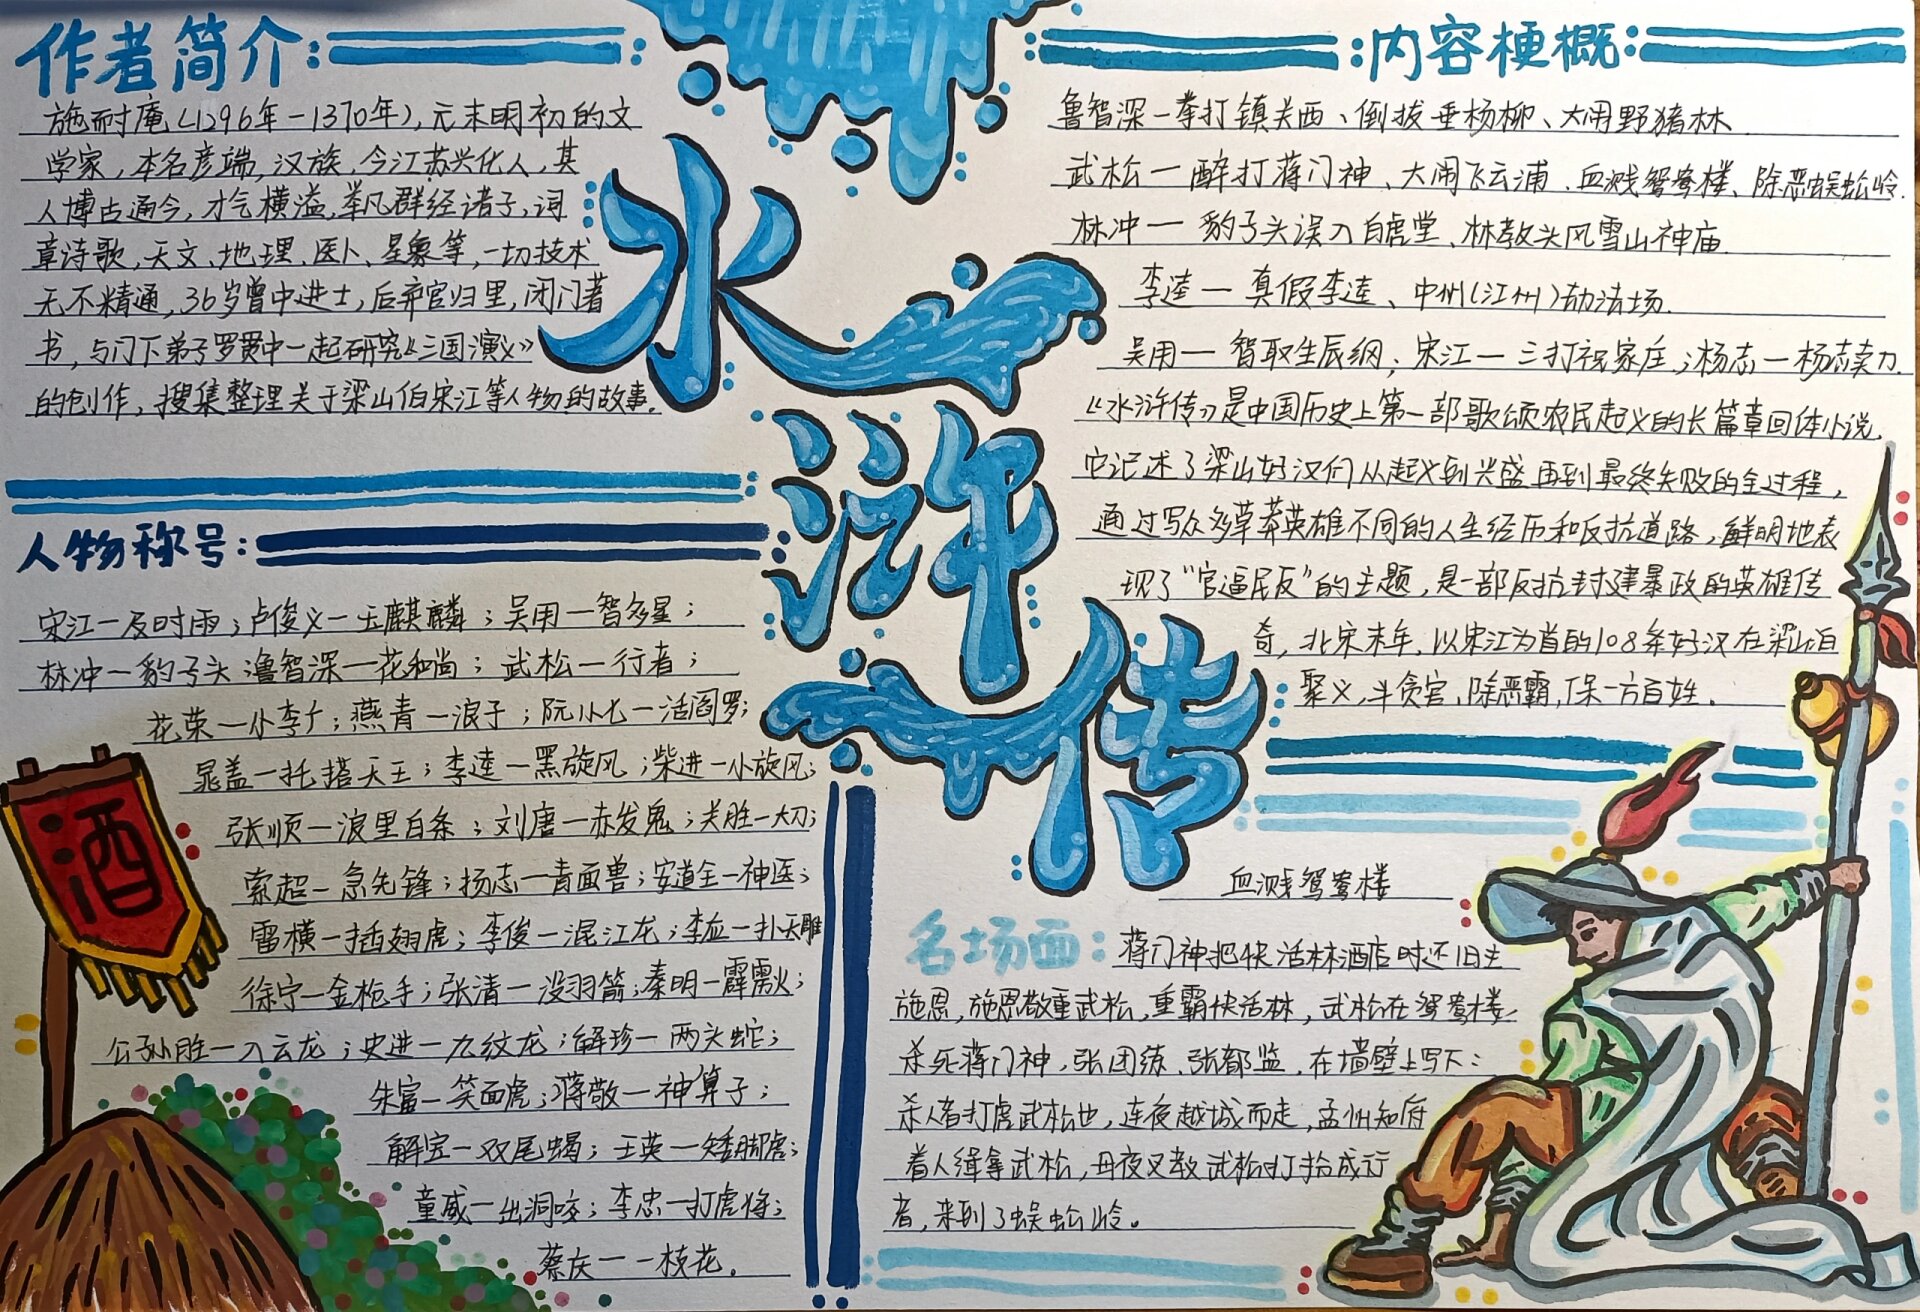 作者简介:
施耐庵(1296年-1370年),元末明初的文
学家,本名彦端,汉族,今江苏兴化人,其
人博古通今,才气横溢,举凡群经诸子,词
章诗歌,天文、地理、医卜、星象等,一切技术
无不精通,36岁曾中进士,后弃官归里,闭门著
书,与门下弟子罗贯中一起研究《三国演义》
的创作,搜集整理关于梁山伯宋江等人物的故事.
水浒传
内容梗概:
鲁智深一拳打镇关西、倒拔垂杨柳、大闹野猪林
武松一醉打蒋门神、大闹飞云浦、血溅鸳鸯楼、除恶蜈蚣岭.
林冲一豹子头误入白虎堂、林教头风雪山神庙.
李逵一真假李逵、中州(江州)劫法场.
吴用一智取生辰纲;宋江一三打祝家庄;杨志一杨志卖刀.
《水浒传》是中国历史上第一部歌颂农民起义的长篇章回体小说,
它记述了梁山好汉们从起义到兴盛再到最终失败的全过程,
通过写众多草莽英雄不同的人生经历和反抗道路,鲜明地表
现了“官逼民反”的主题,是一部反抗封建暴政的英雄传
奇,北宋末年,以宋江为首的108条好汉在梁山泊
聚义,斗贪官,除恶霸,保一方百姓.
人物称号:
宋江一及时雨;卢俊义一玉麒麟;吴用一智多星;
林冲一豹子头;鲁智深一花和尚;武松一行者;
花荣一小李广;燕青一浪子;阮小七一活阎罗;
晁盖一托塔天王;李逵一黑旋风;柴进一小旋风;
张顺一浪里白条;刘唐一赤发鬼;关胜一大刀;
索超一急先锋;杨志一青面兽;安道全一神医;
雷横一插翅虎;李俊一混江龙;李应一扑天雕
徐宁一金枪手;张清一没羽箭;秦明一霹雳火;
公孙胜一入云龙;史进一九纹龙;解珍一两头蛇;
朱富一笑面虎;蒋敬一神算子;
解宝一双尾蝎;王英一矮脚虎;
童威一出洞蛟;李忠一打虎将;
蔡庆一一枝花.
酒
血溅鸳鸯楼
名场面:
蒋门神把快活林酒店时还旧主
施恩,施恩敬重武松,重霸快活林,武松在鸳鸯楼,
杀死蒋门神,张团练、张都监,在墙壁上写下:
杀人者打虎武松也,连夜越城而走,孟州知府
着人缉拿武松,丹夜叉教武松打扮成行
者,来到了蜈蚣岭。